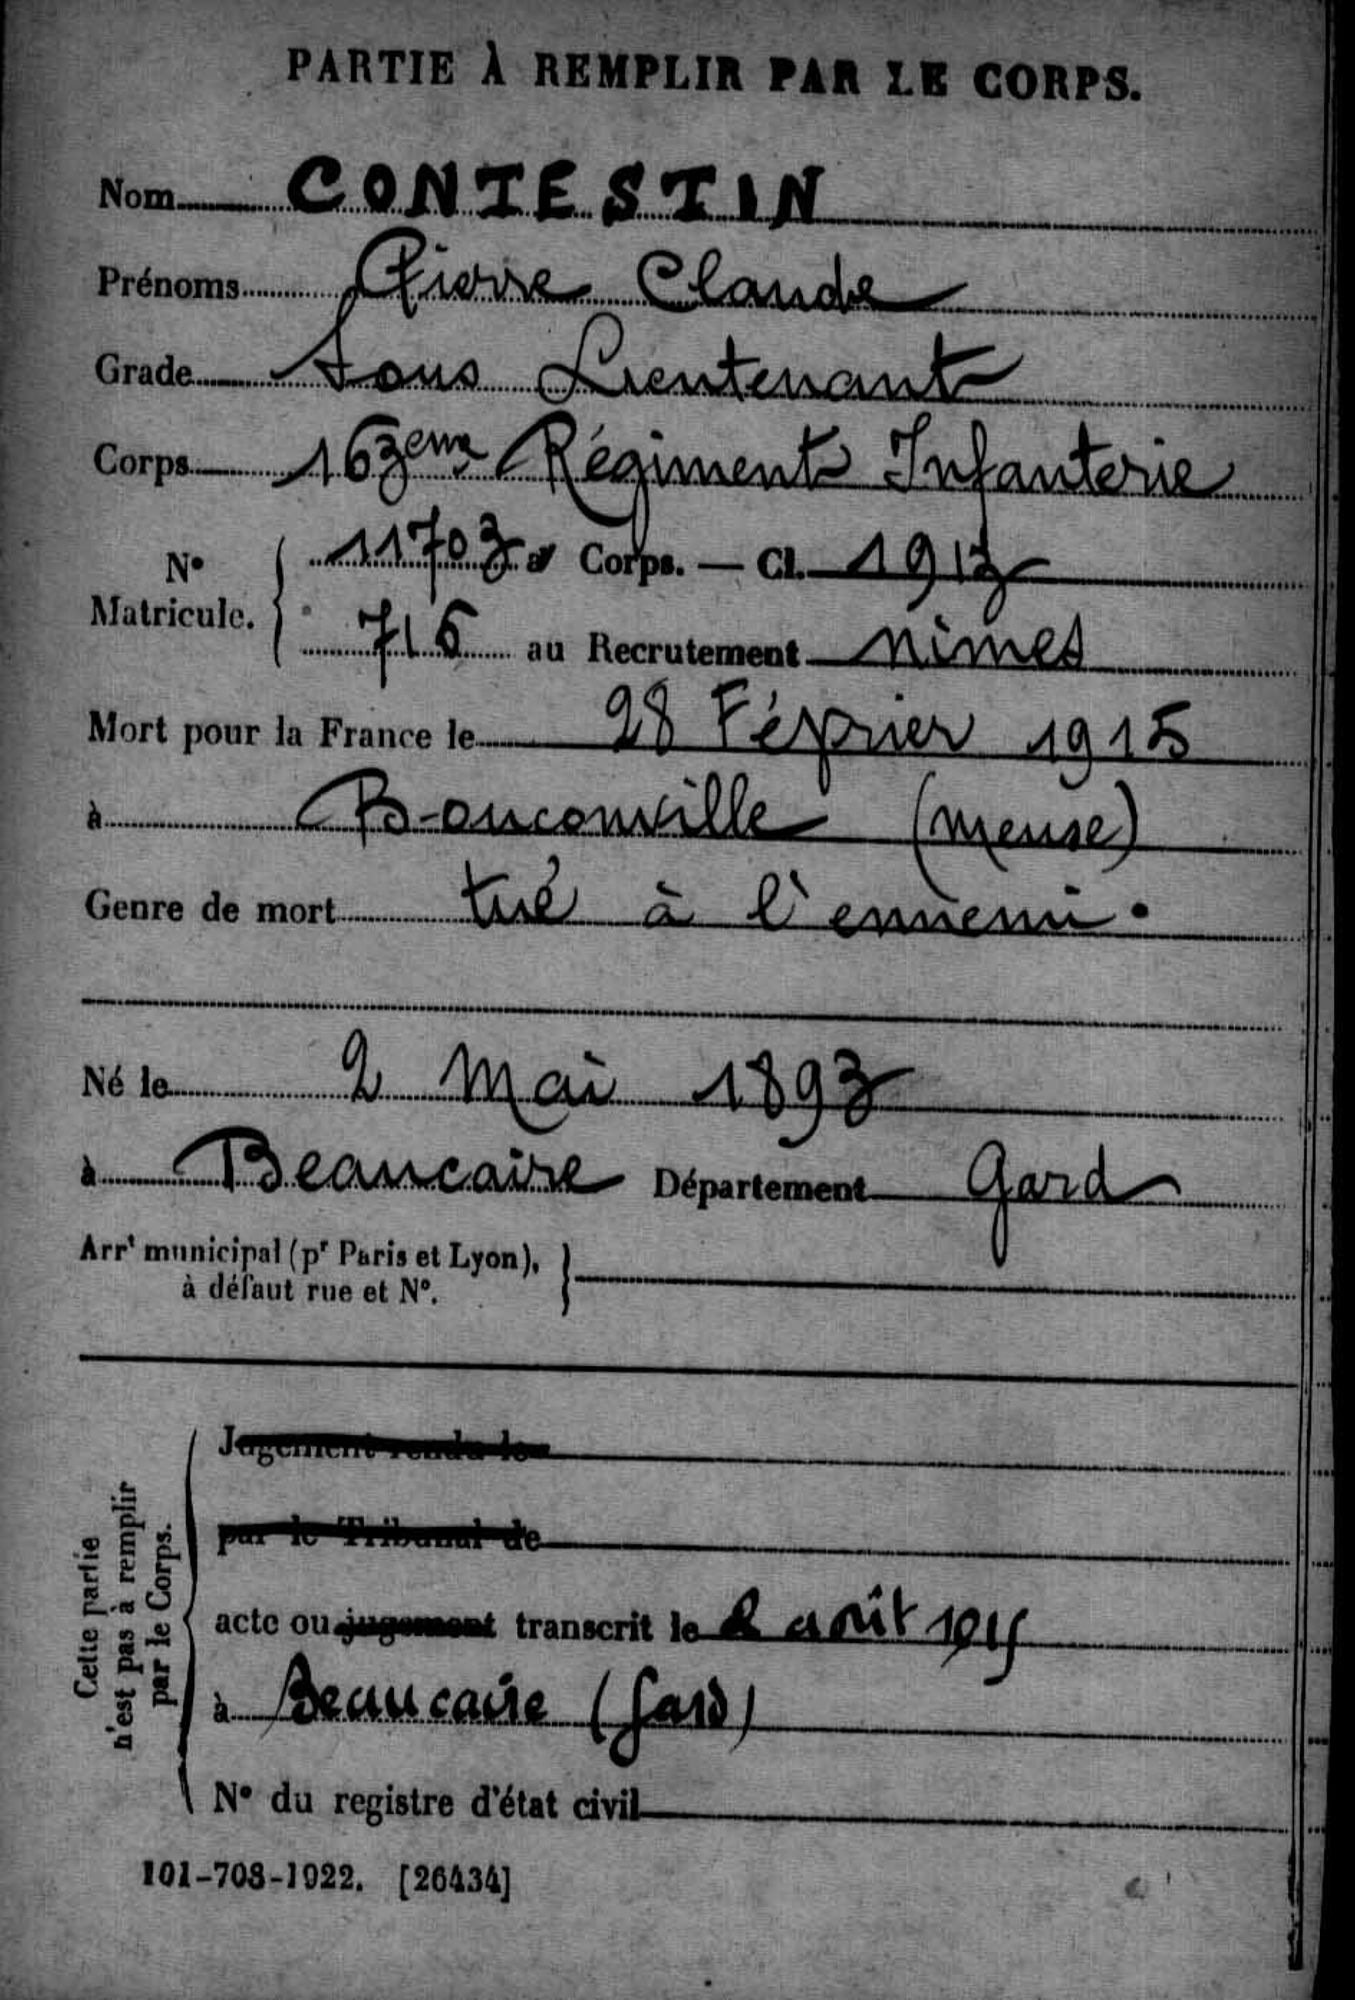 PARTIE À REMPLIR PAR LE CORPS.
Nom CONTESTIN
Prénoms Pierre Claude
Grade Sous Lieutenant
Corps 163eme Régiment Infanterie
N° Matricule. { 11703 au Corps. — Cl. 1913
716 au Recrutement Nimes
Mort pour la France le 28 Février 1915
à Bouconville (Meuse)
Genre de mort tué à l'ennemi.
Né le 2 Mai 1893
à Beaucaire Département Gard
Arrt municipal (pr Paris et Lyon),
à défaut rue et N°.
Cette partie
n'est pas à remplir
par le Corps.
Jugement rendu le
par le Tribunal de
acte ou jugement transcrit le 2 août 1915
à Beaucaire (Gard)
N° du registre d'état civil
101-708-1922. [26434]